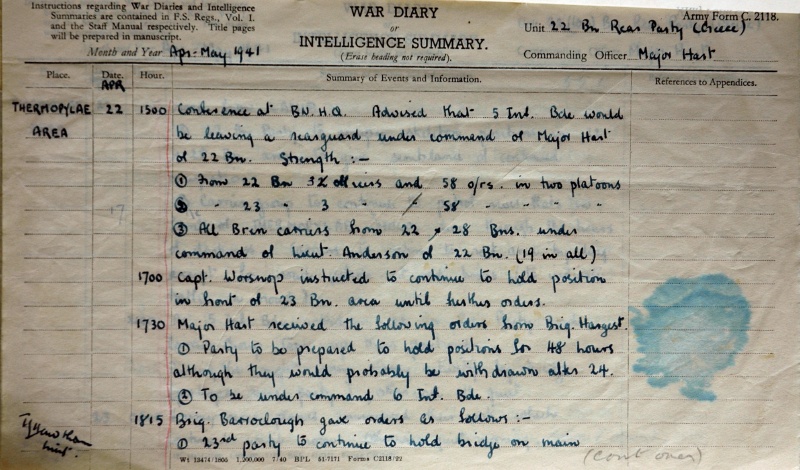 Instructions regarding War Diaries and Intelligence
Summaries are contained in F.S. Regs., Vol. I.
and the Staff Manual respectively. Title pages
will be prepared in manuscript.
WAR DIARY
or
INTELLIGENCE SUMMARY.
(Erase heading not required).
Army Form C. 2118.
Unit 22 Bn Rear Party (Greece)
Month and Year Apr-May 1941
Commanding Officer Major Hart
Place. Date. Hour. Summary of Events and Information. References to Appendices.
APR
THERMOPYLAE 22 1500 Conference at BN. H.Q. Advised that 5 Inf. Bde would
AREA be leaving a rearguard under command of Major Hart
of 22 Bn. Strength :-
① From 22 Bn 3 officers and 58 o/rs. in two platoons
② " 23 " 3 " 58 " " " "
③ All Bren carriers from 22 28 Bns. under
command of Lieut. Anderson of 22 Bn. (19 in all)
1700 Capt. Worsnop instructed to continue to hold position
in front of 23 Bn. area until further orders.
1730 Major Hart received the following orders from Brig. Hargest.
① Party to be prepared to hold positions for 48 hours
although they would probably be withdrawn after 24.
② To be under command 6 Inf. Bde.
1815 Brig. Barroclough gave orders as follows :-
① 23rd party to continue to hold bridge on main
Lieut.
(cont over)
Wt 13474/1805 1,200,000 7/40 BPL 51-7171 Forms C2118/22